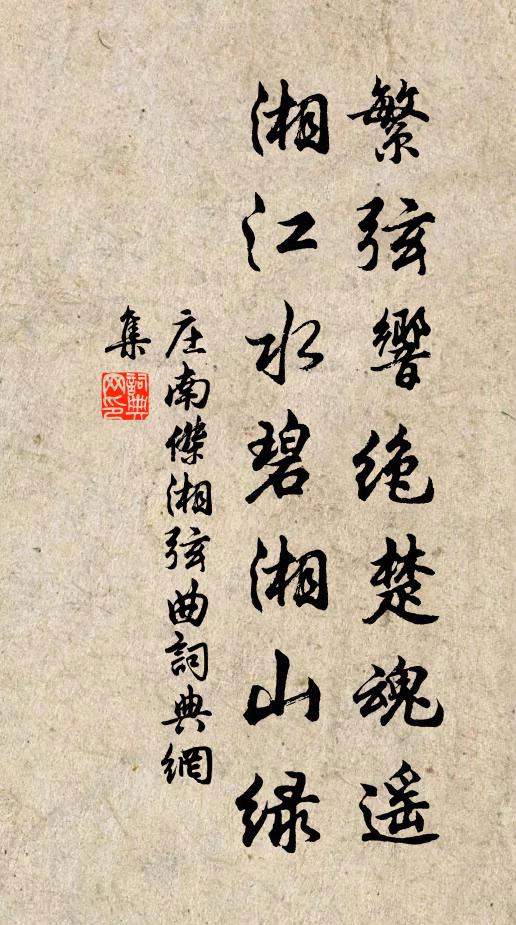 繁弦響绝楚魂遥
湘江水碧湘山绿
庄南傑湘弦曲詞典網
集
詞典
网印